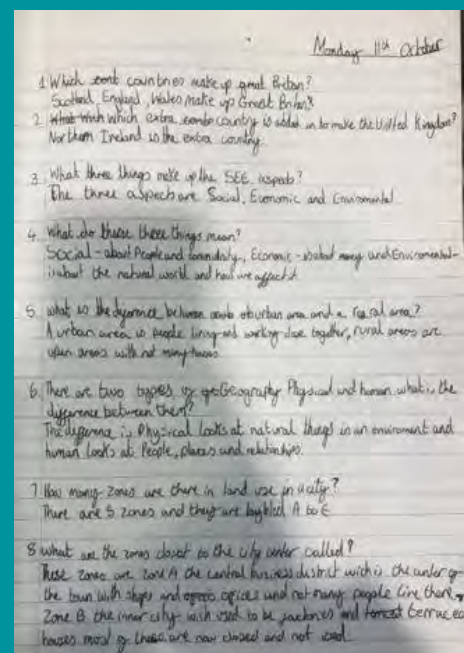 Monday 11th October
1 Which countries make up great Britan?
Scotland, England, Wales make up Great Britan
2. which extra country is added in to make the United Kingdom?
Northern Ireland is the extra country.
3. What three things make up the SEE aspects?
The three aspect are Social, Economic and Enviromental
4. What do these three things mean?
Social - about People and , Economic - is about money and Enviromental -
is about the natural world and how we affect it
5. what is the difference between urban area and a rural area?
A urban area is people living and working close together, rural areas are
open areas with not many houses.
6. There are two types of Geography Physical and human what is the
difference between them?
The difference is Physical looks at natural things in an enviroment and
human looks at People, places and relationships.
7 How many zones are there in land use in a city?
There are 5 zones and they are A to E
8 What are the zones closet to the city center called?
These zones are zone A the central business district wich is the center of
the town with shops and offices and not many people live there,
Zone B the inner city wich used to be factories and terraced
houses most of these are now closed and not used.